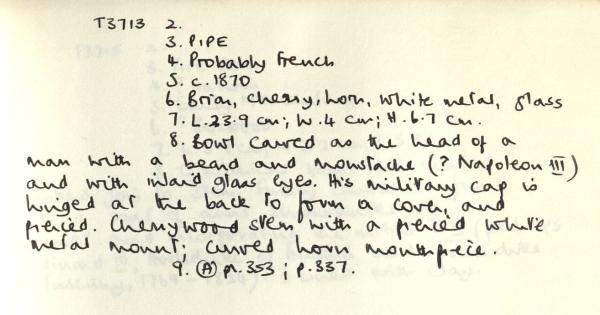 T3713 2.
3. PIPE
4. Probably French
5. c. 1870
6. Briar, cherry, horn, white metal, glass
7. L. 23.9 cm; W. 4 cm; H. 6.7 cm.
8. Bowl carved as the head of a
man with a beard and moustache (? Napoleon III)
and with inlaid glass eyes. His military cap is
hinged at the back to form a cover, and
pierced. Cherrywood stem with a pierced white
metal mount; curved horn mouthpiece.
9. (A) pr. 353; p. 337.